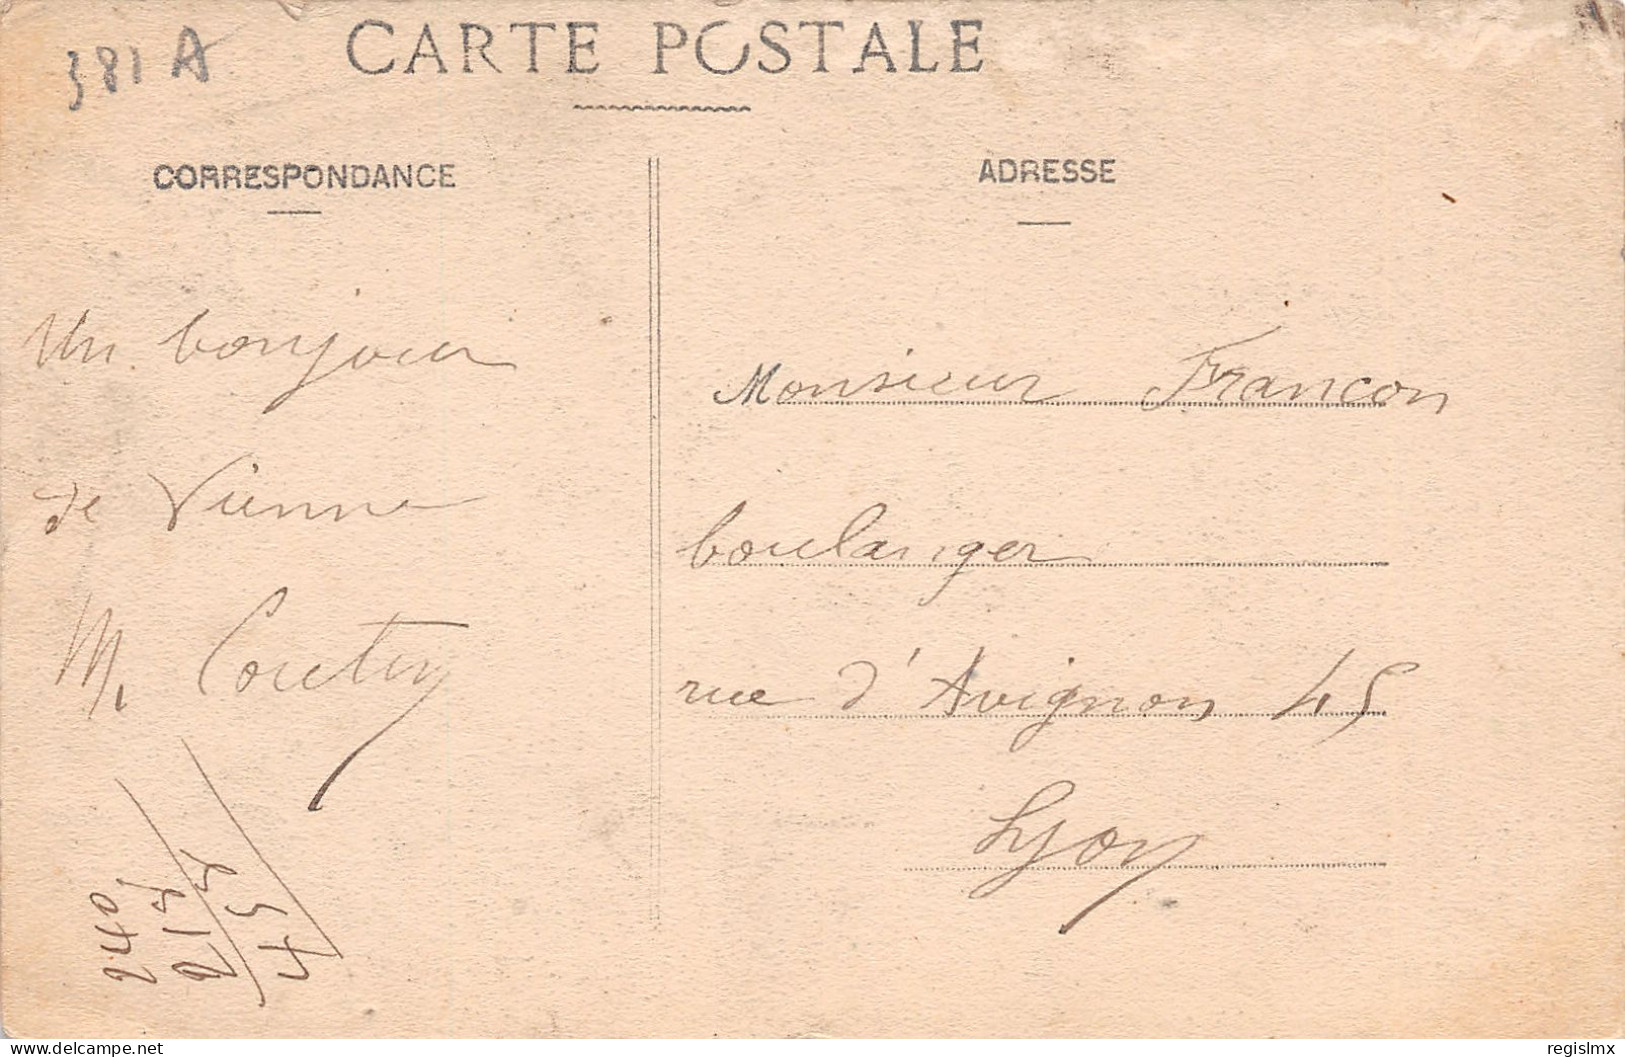 381 A
CARTE POSTALE
CORRESPONDANCE
ADRESSE
Un bonjour
de Vienne
M. Coutry
240
215
455
Monsieur Francon
boulanger
rue d'Avignon 45
Lyon
www.delcampe.net
regislmx